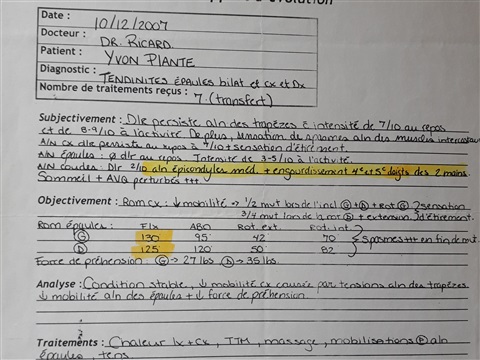 Date : 10/12/2007
Docteur : DR. RICARD.
Patient : YVON PLANTE
Diagnostic : TENDINITES ÉPAULES BILAT et CX et Dx
Nombre de traitements reçus : 7. (transfert)
Subjectivement : Dlr persiste a/n des trapèzes à intensité de 7/10 au repos
et de 8-9/10 à l'activité. De plus, sensation de spasmes a/n des muscles intercostaux
A/N CX dlr persiste au repos à 7/10 + sensation d'étirement.
A/N épaules : ø dlr au repos. Intensité de 3-5/10 à l'activité.
A/N coudes : Dlr 2/10 a/n épicondyles méd. + engourdissement 4e et 5e doigts des 2 mains.
Sommeil + AVQ perturbés +++
Objectivement : Rom cx : ↓ mobilité → 1/2 mvt lors de l'incl (G) + (D) + rot (G) sensation
3/4 mvt lors de la rot (D) + extension d'étirement.
Rom épaules : Flx ABD Rot. ext. Rot. int.
(G) 130 95 42 70 spasmes +++ en fin de mvt.
(D) 125 120 50 82
Force de préhension : (G) → 27 lbs (D) → 35 lbs
Analyse : Condition stable, ↓ mobilité cx causée par tensions a/n des trapèzes
↓ mobilité a/n des épaules + ↓ force de préhension
Traitements : Chaleur lx + cx, TTM, massage, mobilisations a/n
épaules, tens